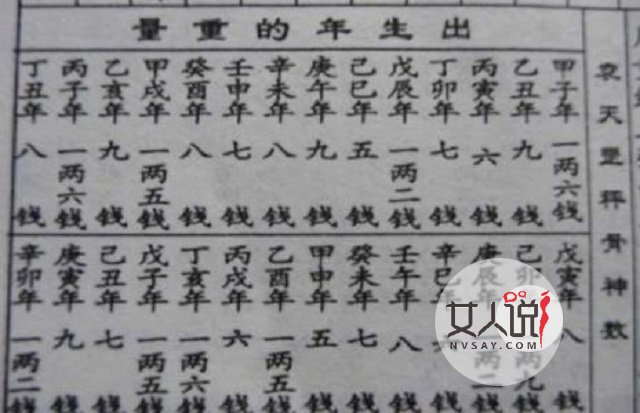 出生年的重量
袁天罡秤骨神数
甲子年 一两六钱
乙丑年 九钱
丙寅年 六钱
丁卯年 七钱
戊辰年 一两二钱
己巳年 五钱
庚午年 九钱
辛未年 八钱
壬申年 七钱
癸酉年 八钱
甲戌年 一两五钱
乙亥年 九钱
丙子年 一两六钱
丁丑年 八钱
戊寅年 八钱
己卯年 两九钱
庚辰年 两二钱
辛巳年 钱
壬午年 八钱
癸未年 七钱
甲申年 五钱
乙酉年 一两五钱
丙戌年 六钱
丁亥年 一两六钱
戊子年 一两五钱
己丑年 七钱
庚寅年 九钱
辛卯年 一两二钱
女人说
NVSAY.COM